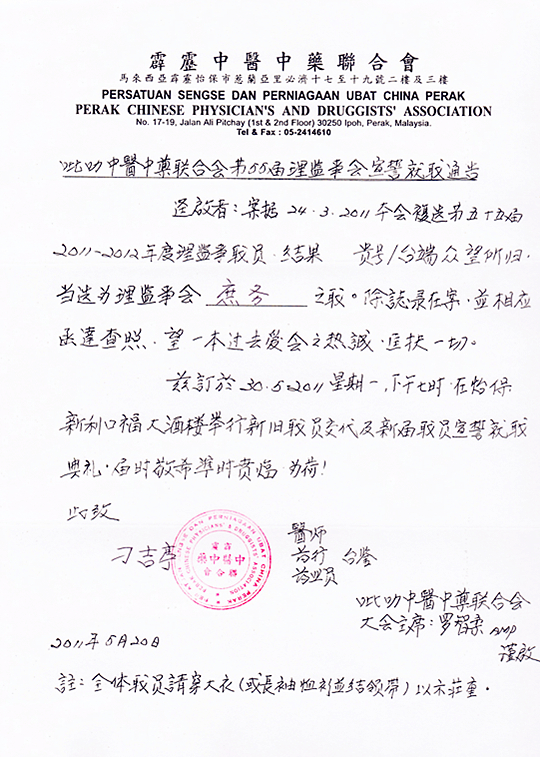 霹靂中醫中藥聯合會
馬來西亞霹靂怡保市惹蘭亞里必濟十七至十九號二樓及三樓
PERSATUAN SENGSE DAN PERNIAGAAN UBAT CHINA PERAK
PERAK CHINESE PHYSICIAN'S AND DRUGGISTS' ASSOCIATION
No. 17-19, Jalan Ali Pitchay (1st & 2nd Floor) 30250 Ipoh, Perak, Malaysia.
Tel & Fax : 05-2414610
吡叻中醫中藥联合会第55届理监事会宣誓就职通告
迳啟者:案据24.3.2011本会複选第五十五届
2011-2012年度理监事职员.结果 贵号/台端众望所归,
当选为理监事会 庶务 之职。除誌录在案,並相应
函達查照.望一本过去爱会之热誠.匡扶一切。
兹訂於30.5.2011星期一,下午七时.在怡保
新利口福大酒楼举行新旧职员交代及新届职员宣誓就职
典礼.届时敬希準时賁临.为荷!
此致
刁吉亭
醫师
药行 台鉴
药业员
霹靂中醫中藥聯合會
PERSATUAN SENGSE DAN PERNIAGAAN UBAT CHINA PERAK
PERAK CHINESE PHYSICIANS' & DRUGGISTS' ASSOCIATION
吡叻中醫中藥联合会
大会主席:罗智荣 AMP
謹啟
2011年5月20日
註:全体职员請穿大衣(或長袖恤衫並结领带)以示莊重.